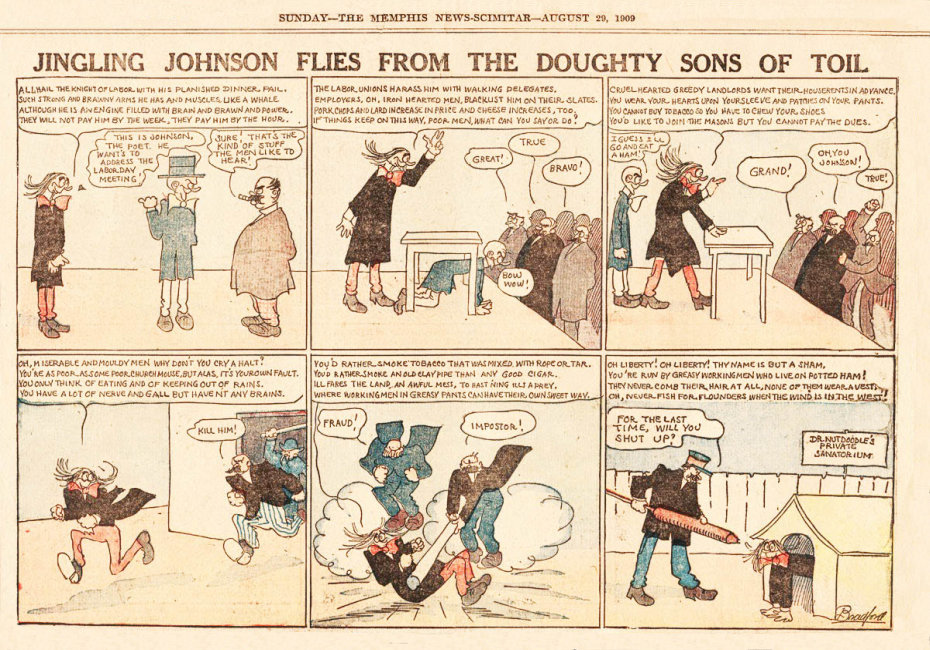 SUNDAY—THE MEMPHIS NEWS-SCIMITAR—AUGUST 29, 1909
JINGLING JOHNSON FLIES FROM THE DOUGHTY SONS OF TOIL
ALL HAIL THE KNIGHT OF LABOR, WITH HIS PLANISHED DINNER PAIL,
SUCH STRONG AND BRAWNY ARMS HE HAS AND MUSCLES, LIKE A WHALE.
ALTHOUGH HE IS AN ENGINE FILLED WITH BRAIN AND BRAWN AND POWER,
THEY WILL NOT PAY HIM BY THE WEEK, THEY PAY HIM BY THE HOUR.
THIS IS JOHNSON,
THE POET. HE
WANTS TO
ADDRESS THE
LABOR DAY
MEETING!
SURE! THAT'S THE
KIND OF STUFF
THE MEN LIKE TO
HEAR!
THE LABOR UNIONS HARASS HIM WITH WALKING DELEGATES.
EMPLOYERS, OH, IRON HEARTED MEN, BLACKLIST HIM ON THEIR SLATES.
PORK CHOPS AND LARD INCREASE IN PRICE AND CHEESE INCREASES, TOO.
IF THINGS KEEP ON THIS WAY, POOR MEN, WHAT CAN YOU SAY OR DO?
GREAT!
TRUE
BRAVO!
BOW
WOW!
CRUEL HEARTED GREEDY LANDLORDS WANT THEIR HOUSE RENTS IN ADVANCE.
YOU WEAR YOUR HEARTS UPON YOUR SLEEVE AND PATCHES ON YOUR PANTS.
YOU CANNOT BUY TOBACCO SO YOU HAVE TO CHEW YOUR SHOES
YOU'D LIKE TO JOIN THE MASONS BUT YOU CANNOT PAY THE DUES.
I GUESS I'LL
GO AND EAT
A HAM!
GRAND!
OH, YOU
JOHNSON!
TRUE!
OH, MISERABLE AND MOULDY MEN WHY DON'T YOU CRY A HALT?
YOU'RE AS POOR AS SOME POOR CHURCH MOUSE, BUT ALAS, IT'S YOUR OWN FAULT.
YOU ONLY THINK OF EATING AND OF KEEPING OUT OF RAINS.
YOU HAVE A LOT OF NERVE AND GALL BUT HAVENT ANY BRAINS.
KILL HIM!
YOU'D RATHER SMOKE TOBACCO THAT WAS MIXED WITH ROPE OR TAR.
YOU'D RATHER SMOKE AN OLD CLAY PIPE THAN ANY GOOD CIGAR.
ILL FARES THE LAND, AN AWFUL MESS, TO HAST'NING ILLS A PREY.
WHERE WORKINGMEN IN GREASY PANTS CAN HAVE THEIR OWN SWEET WAY.
FRAUD!
IMPOSTOR!
OH LIBERTY! OH LIBERTY! THY NAME IS BUT A SHAM,
YOU'RE RUN BY GREASY WORKINGMEN WHO LIVE ON POTTED HAM!
THEY NEVER COMB THEIR HAIR AT ALL, NONE OF THEM WEAR A VEST;
OH, NEVER FISH FOR FLOUNDERS WHEN THE WIND IS IN THE WEST!
FOR THE LAST
TIME, WILL YOU
SHUT UP?
DR. NUTDOODLE'S
PRIVATE
SANATORIUM
Bradford